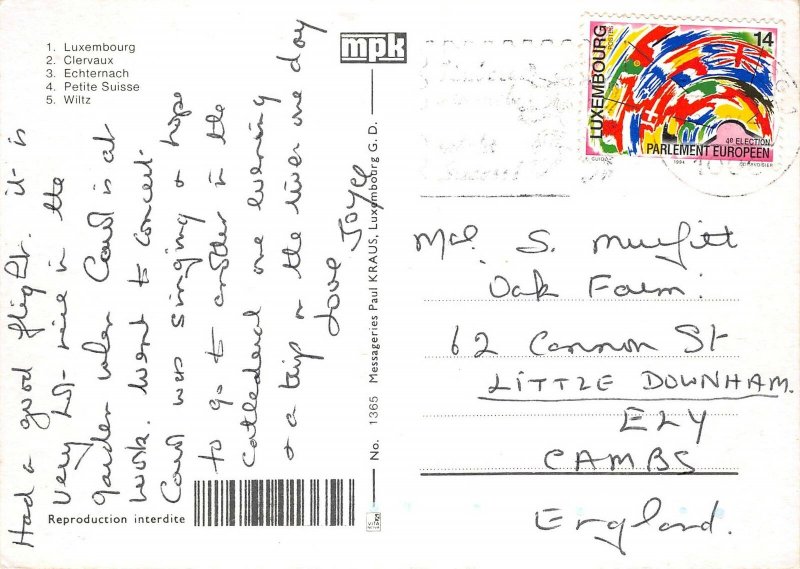 1. Luxembourg
2. Clervaux
3. Echternach
4. Petite Suisse
5. Wiltz
mpk
LUXEMBOURG
POSTES
14
4e ELECTION
PARLEMENT EUROPEEN
1994
Had a good flight. it is
very hot - nice in the
garden when Carol is at
work. Went to concert.
Carol was singing & hope
to go to another in the
Cathederal one evening
& a trip on the river one day
Love Joyce
No. 1365 Messageries Paul KRAUS, Luxembourg G. D.
S. Murfitt
Oak Farm.
62 Cannon St
LITTLE DOWNHAM.
ELY
CAMBS
England.
Reproduction interdite